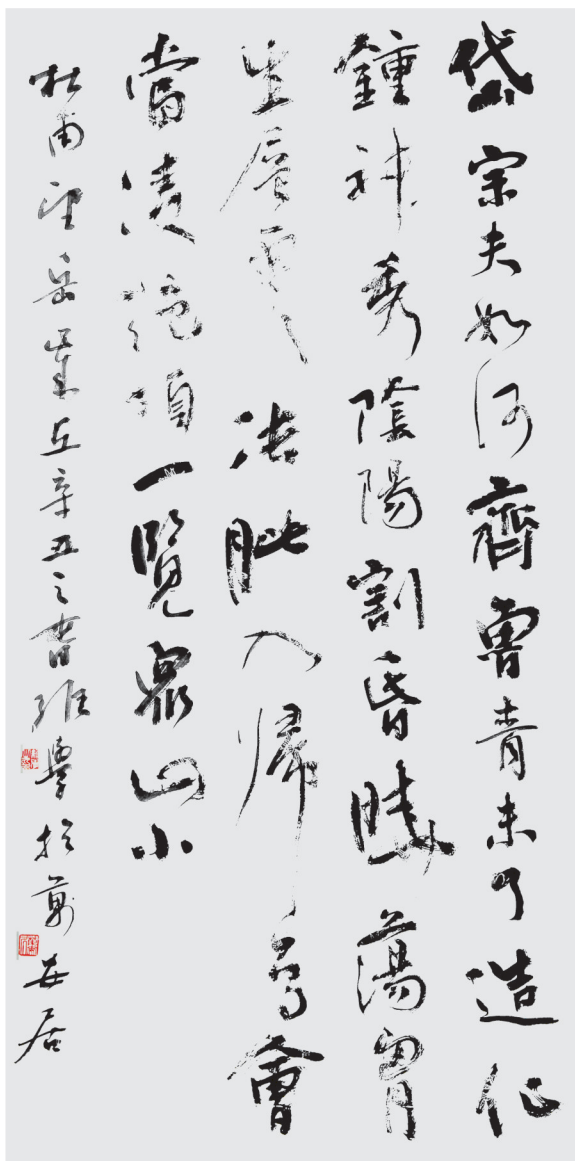 岱宗夫如何齊魯青未了造化
鍾神秀陰陽割昏曉蕩胷
生層雲決眦入歸鳥會
當凌絕頂一覽眾山小
杜甫望岳歲在辛丑之春維學於安居